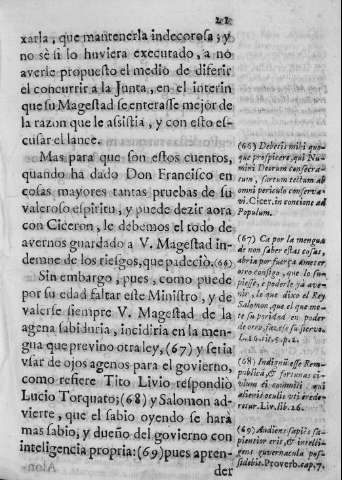 21
xarla, que mantenerla indecorosa; y
no sè si lo huviera executado, a no
averle propuesto el medio de diferir
el concurrir a la Junta, en el interin
que su Magestad se enterasse mejor de
la razon que le assistia, y con esto es-
cusar el lance.
Mas para que son estos cuentos,
quando ha dado Don Francisco en
cosas mayores tantas pruebas de su
valeroso espiritu, y puede dezir aora
con Ciceron, le debemos el todo de
avernos guardado a V. Magestad in-
demne de los riesgos, que padeciò. (66)
Sin embargo, pues, como puede
por su edad faltar este Ministro, y de
valerse siempre V. Magestad de la
agena sabiduria, incidiria en la men-
gua que previno otra ley, (67) y seria
vsar de ojos agenos para el govierno,
como refiere Tito Livio respondiò
Lucio Torquato; (68) y Salomon ad-
vierte, que el sabio oyendo se harà
mas sabio, y dueño del govierno con
inteligencia propria: (69) pues apren-
der
(66) Deberis mihi quo-
que prospicere, qui Nu-
mini Deorum consecra-
tum, sartum tectum ab
omni periculo conserva-
vi. Cicer. in concione ad
Populum.
(67) Ca por la mengua
de non saber estas cosas,
abria por fuerça a meter
otro consigo, que lo su-
piesse, è poderle ya ave-
nir, lo que dixo el Rey
Salomon, que el que me-
te su poridad en poder
de otro, fazese su siervo.
L. 16. tit. 5. p. 2.
(68) Indignũ esse Rem-
publicã, & fortunas ci-
vium ei committi, qui
alieni oculis vti erede-
retur. Liv. lib. 26.
(69) Audiens sapiẽs sa-
pientior erit, & intelli-
gens guvernacula pos-
sidebit. Proverb. cap. 7.